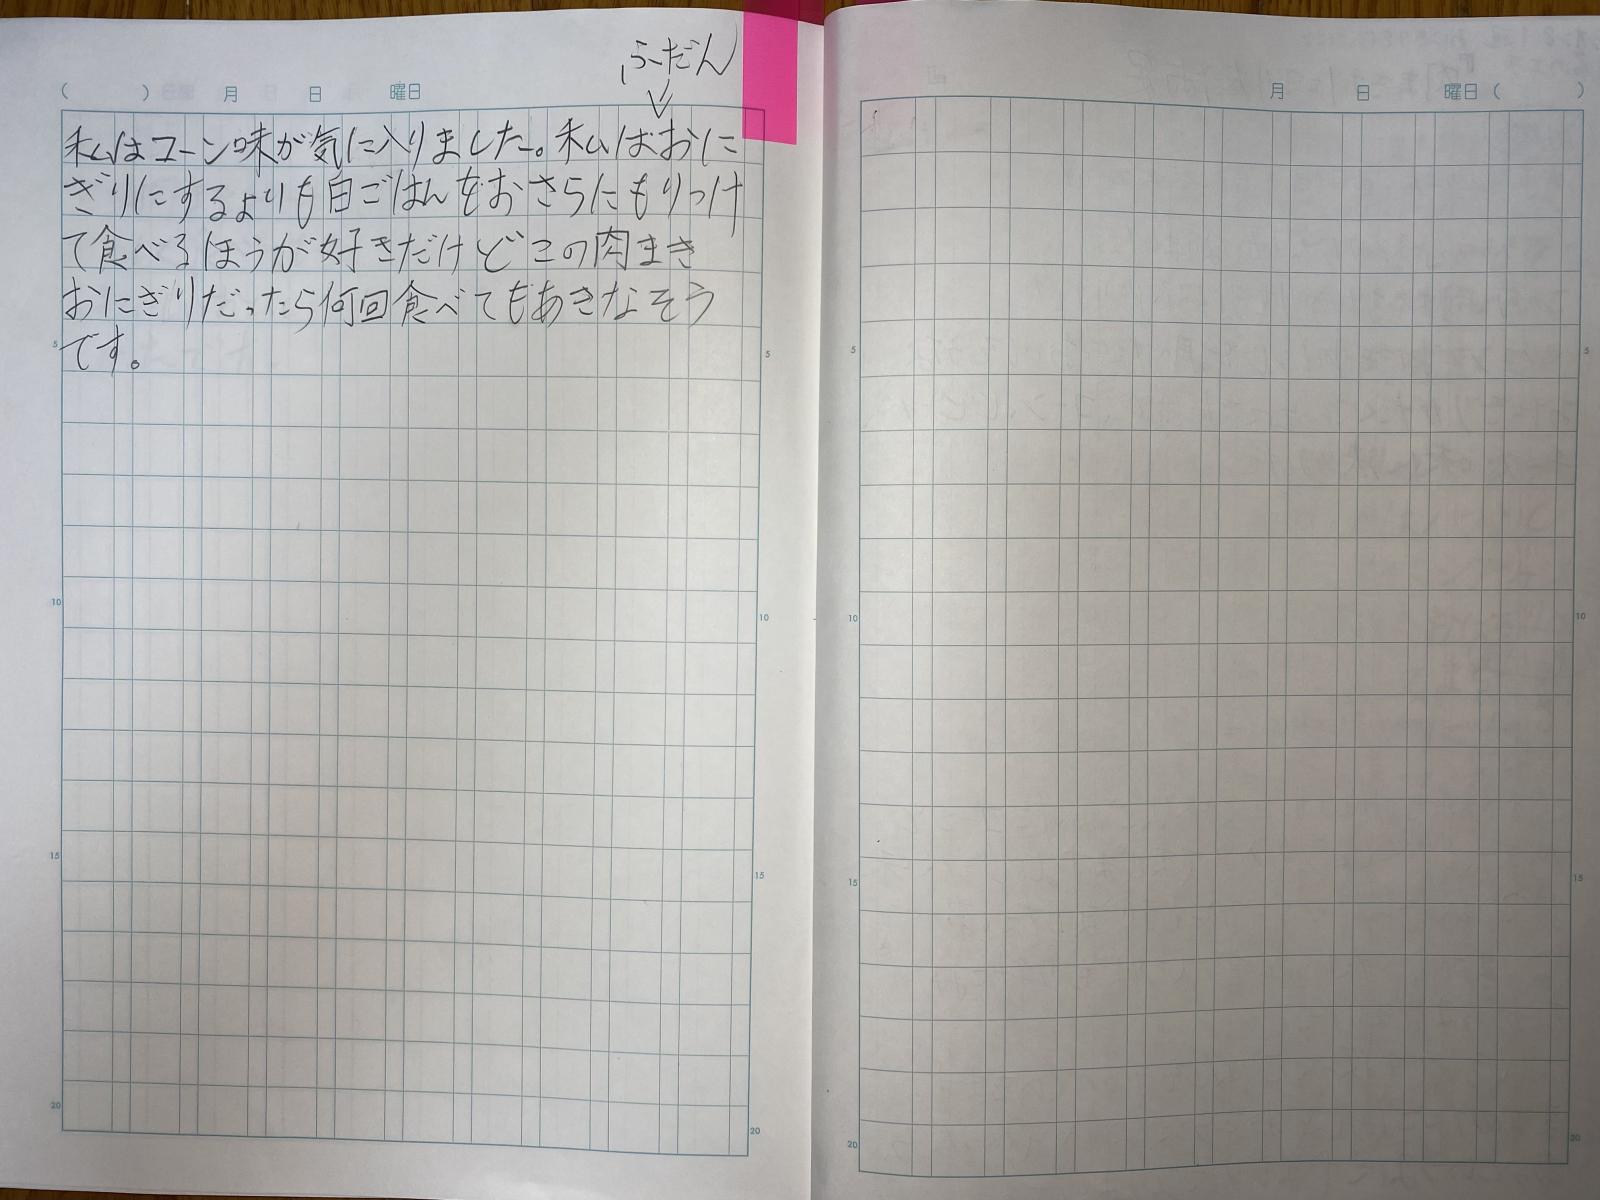 ふだん
( ) 月 日 曜日
私はコーン味が気に入りました。私はおに
ぎりにするよりも白ごはんをおさらにもりつけ
て食べるほうが好きだけどこの肉まき
おにぎりだったら何回食べてもあきなそう
です。
5
10
15
20
5
10
15
20
月 日 曜日 ( )
5
10
15
20
5
10
15
20